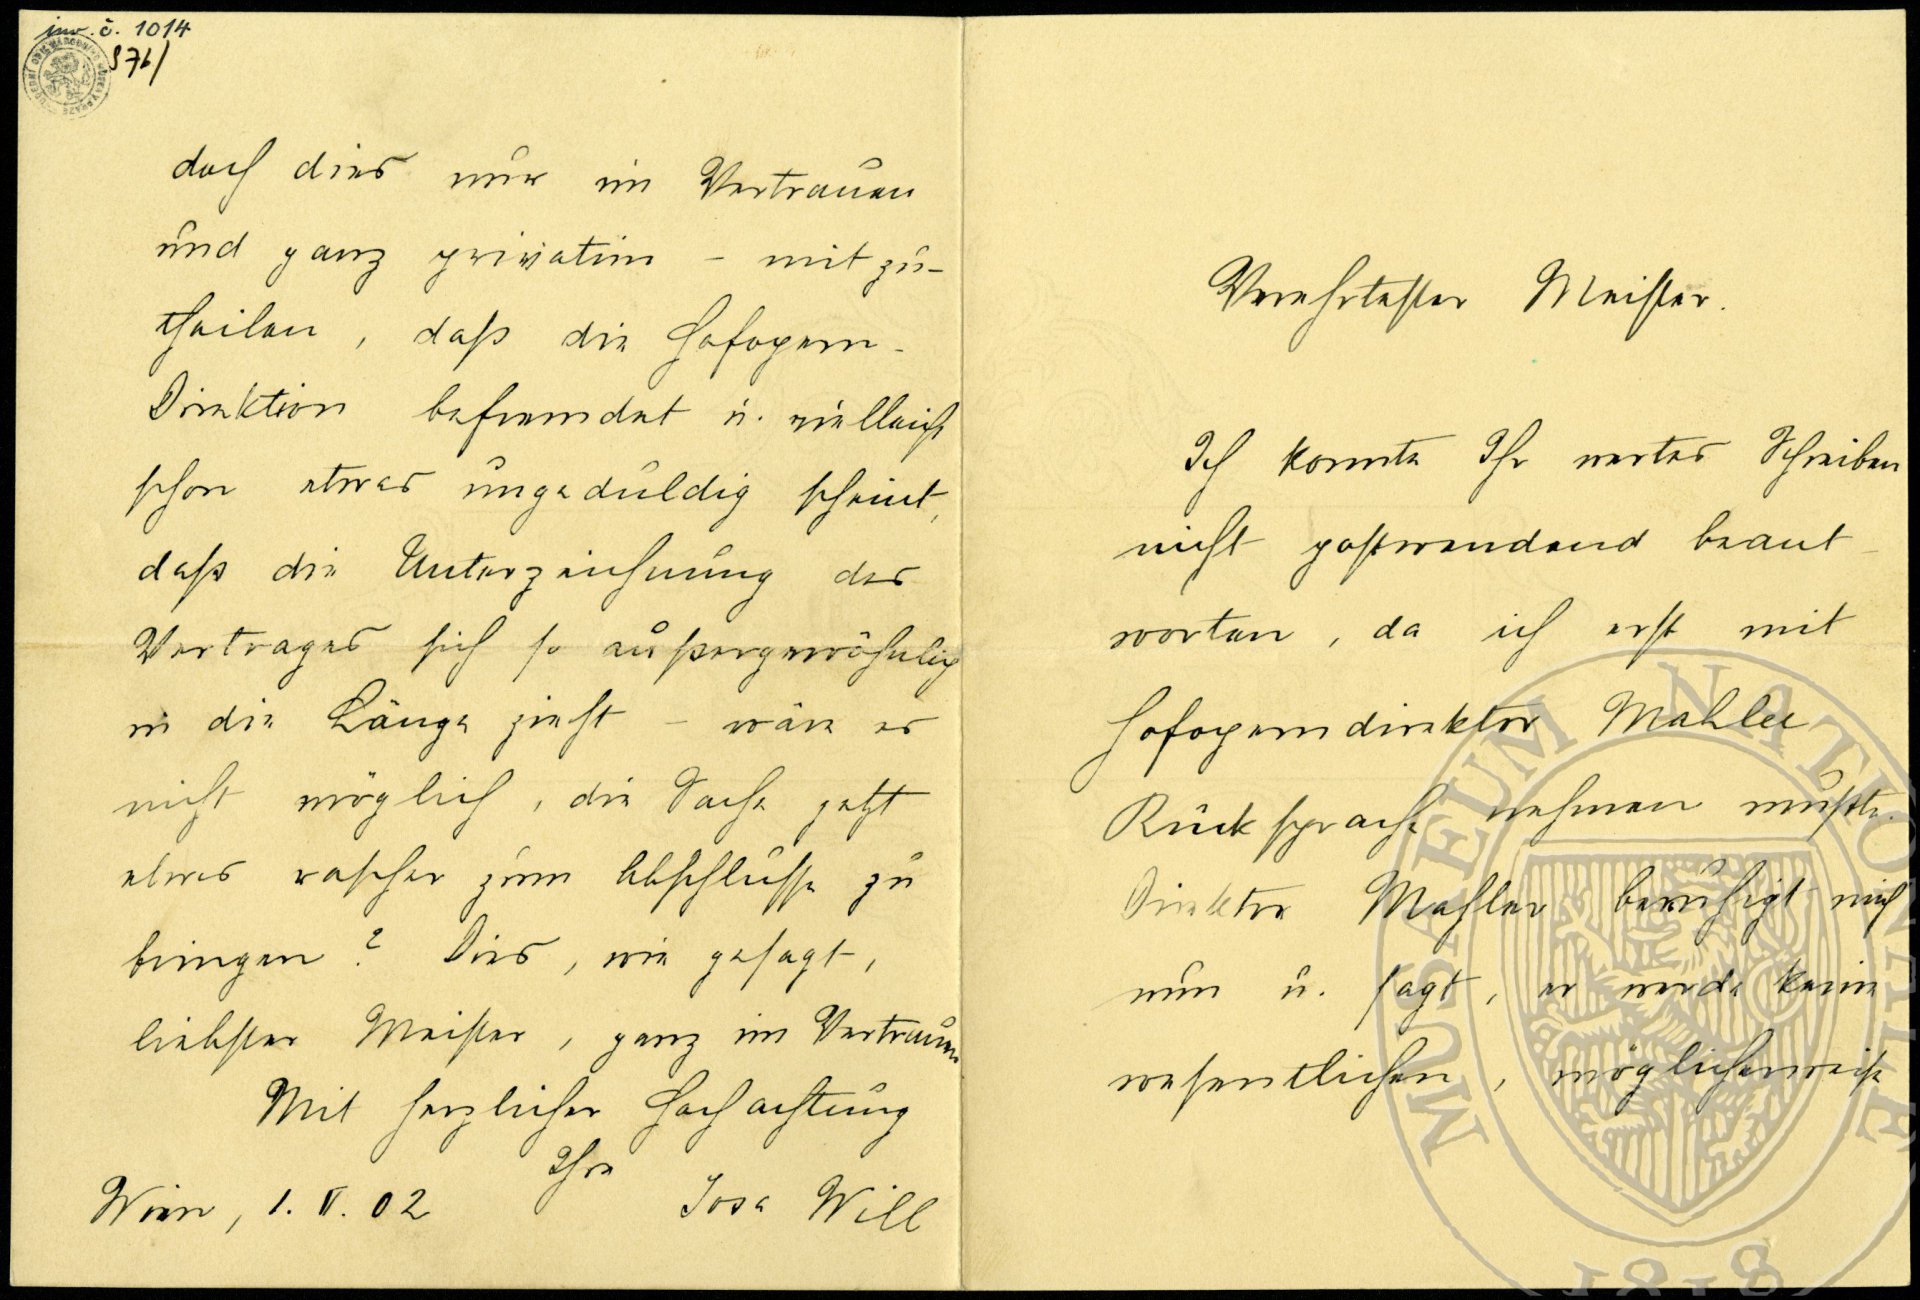 inv. č. 1014
Verehrtester Meister.
Ich konnte Ihr wertes Schreiben
nicht postwendend beant-
worten, da ich erst mit
Hofoperndirektor Mahler
Rücksprache nehmen mußte.
Direktor Mahler beruhigt mich
nun u. sagt, er werde keine
wesentlichen, möglicherweise
doch dies nur im Vertrauen
und ganz privatim – mitzu-
theilen, daß die Hofopern-
Direktion befremdet u. vielleicht
schon etwas ungeduldig scheint,
daß die Unterzeichnung des
Vertrages sich so außergewöhnlich
in die Länge zieht – wäre es
nicht möglich, die Sache jetzt
etwas rascher zum Abschlusse zu
bringen? Dies, wie gesagt,
liebster Meister, ganz im Vertrauen
Mit herzlicher Hochachtung
Ihre
Wien, 1. V. 02 Josa Will
MUSAEUM NATIONALE
1818